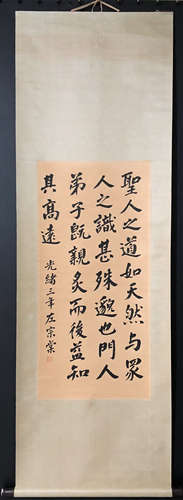 聖人之道如天然与眾
人之識甚殊邈也門人
弟子既親炙而後益知
其高遠
光緒三年左宗棠